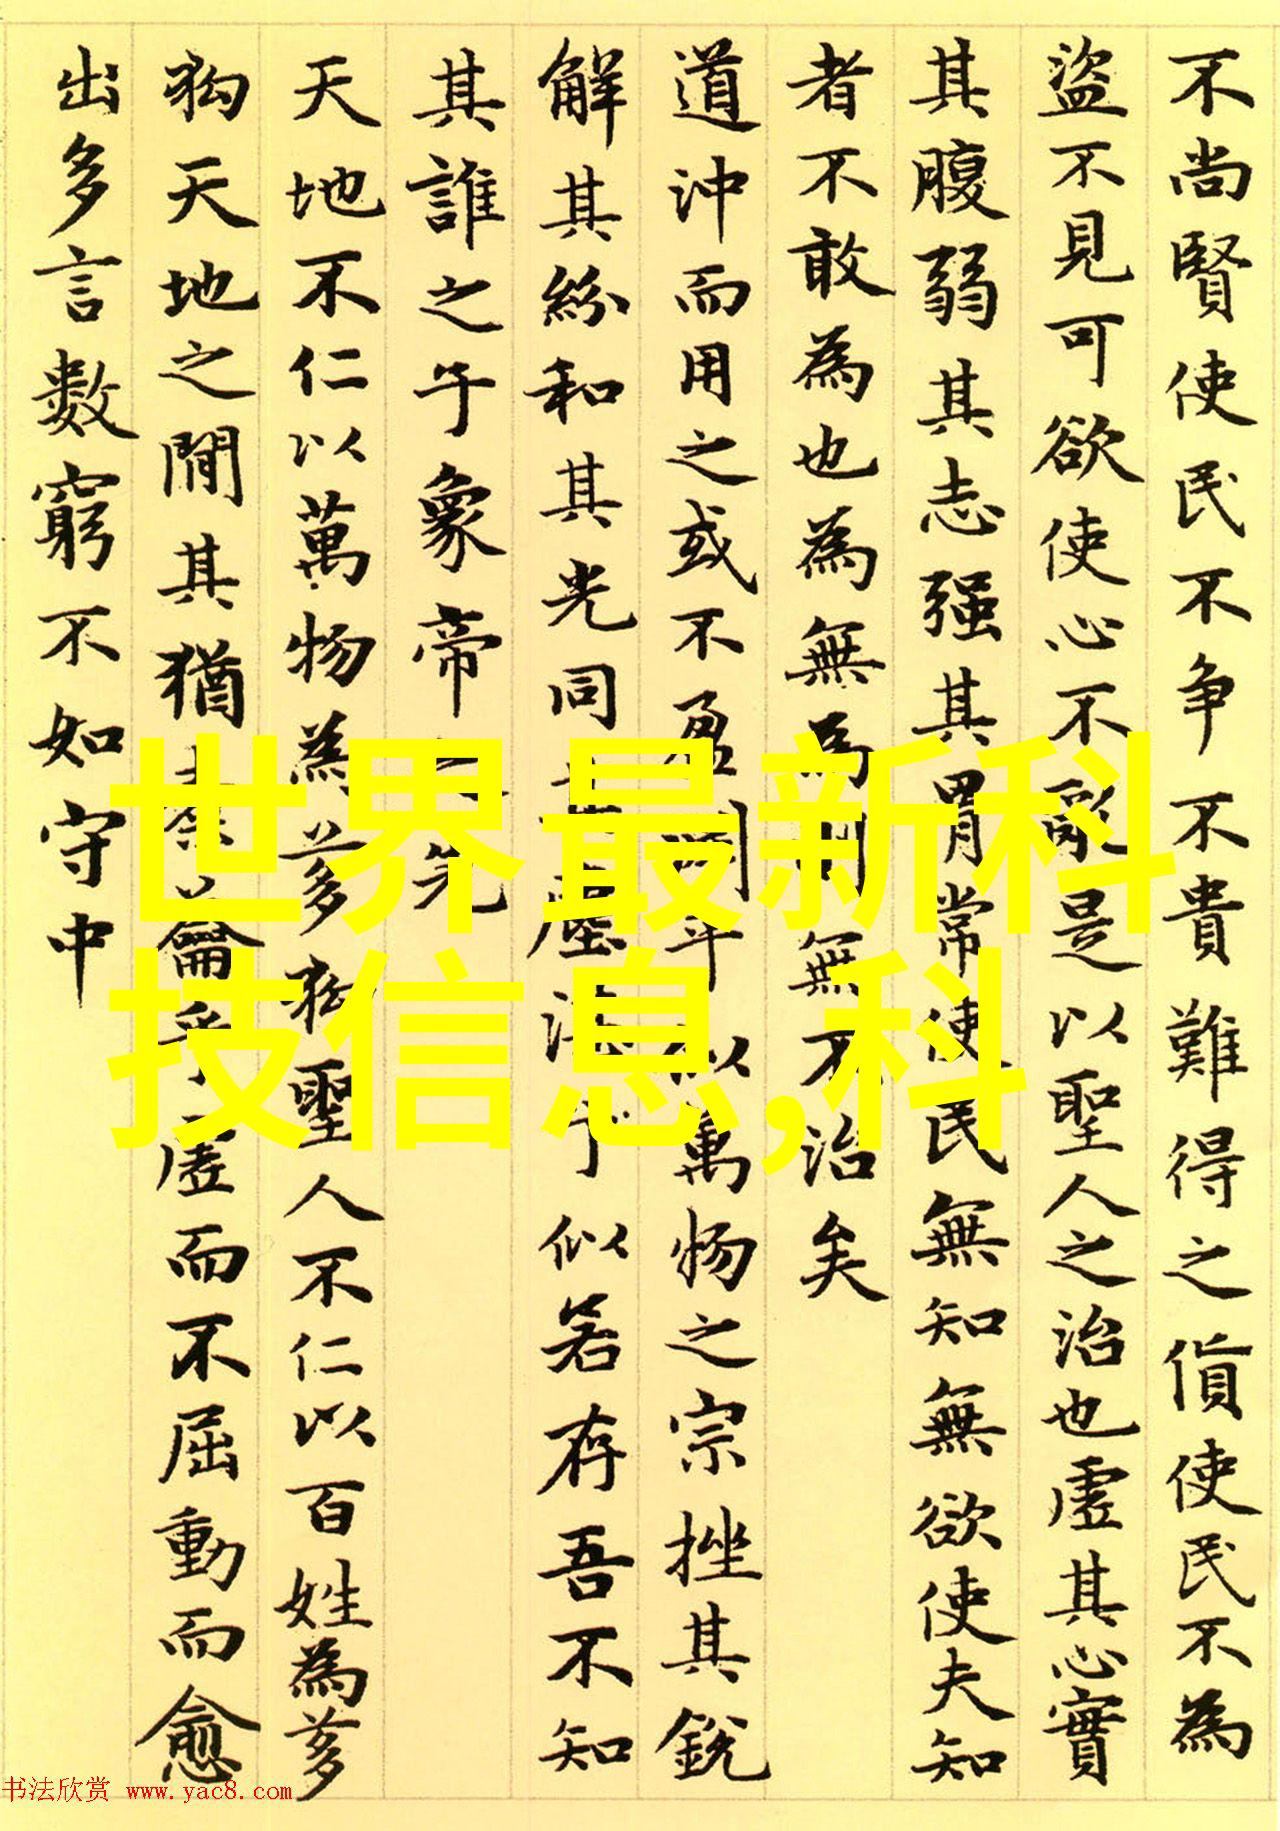 不尚賢使民不争不貴難得之貨使民不為
盜不見可欲使心不亂是以聖人之治也虛其心實
其腹弱其志强其骨常使民無知無欲使夫知
者不敢為也為無為則無不治矣
道沖而用之或不盈淵乎似萬物之宗挫其銳
解其紛和其光同其塵湛乎似若存吾不知
其誰之子象帝之先
天地不仁以萬物為芻狗聖人不仁以百姓為芻
狗天地之間其猶橐籥乎虛而不屈動而愈
出多言數窮不如守中
世界最新科
技信息,科
书法欣赏 www.yac8.com